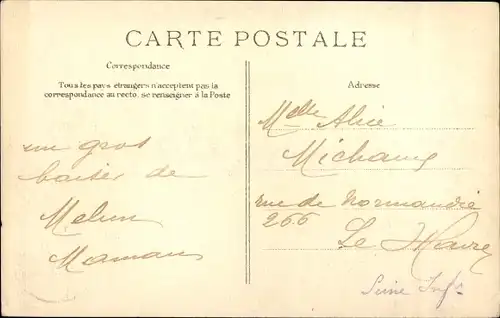 CARTE POSTALE
Correspondance
Tous les pays étrangers n'acceptent pas la
correspondance au recto, se renseigner à la Poste
un gros
baiser de
Melun
Maman
Adresse
Melle Alice
Michaux
rue de Normandie
266
Le Havre
Seine Infre